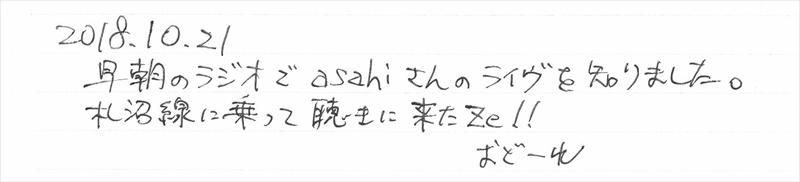 2018.10.21
早朝のラジオで asahi さんのライヴを知りました。
札沼線に乗って聴きに来たZe!!
おどーれ